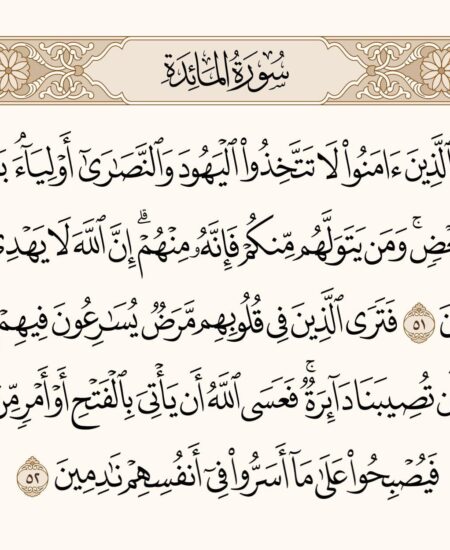 سُورَةُ المَائِدَةِ
ٱلَّذِينَ ءَامَنُوا۟ لَا تَتَّخِذُوا۟ ٱلْيَهُودَ وَٱلنَّصَٰرَىٰٓ أَوْلِيَآءَۘ
وَمَن يَتَوَلَّهُم مِّنكُمْ فَإِنَّهُۥ مِنْهُمْۗ إِنَّ ٱللَّهَ لَا يَهْدِى
٥١ فَتَرَى ٱلَّذِينَ فِى قُلُوبِهِم مَّرَضٌ يُسَٰرِعُونَ فِيهِمْ
تُصِيبَنَا دَآئِرَةٌۚ فَعَسَى ٱللَّهُ أَن يَأْتِىَ بِٱلْفَتْحِ أَوْ أَمْرٍ مِّنْ
فَيُصْبِحُوا۟ عَلَىٰ مَآ أَسَرُّوا۟ فِىٓ أَنفُسِهِمْ نَٰدِمِينَ ٥٢